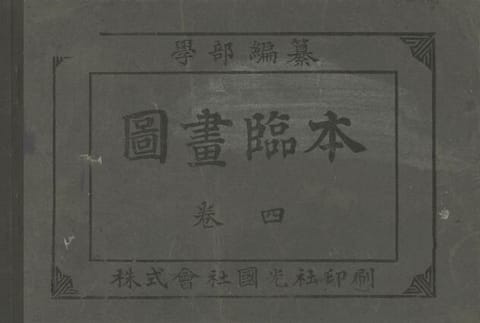 學部編纂
圖畫臨本
卷四
株式會社國光社印刷